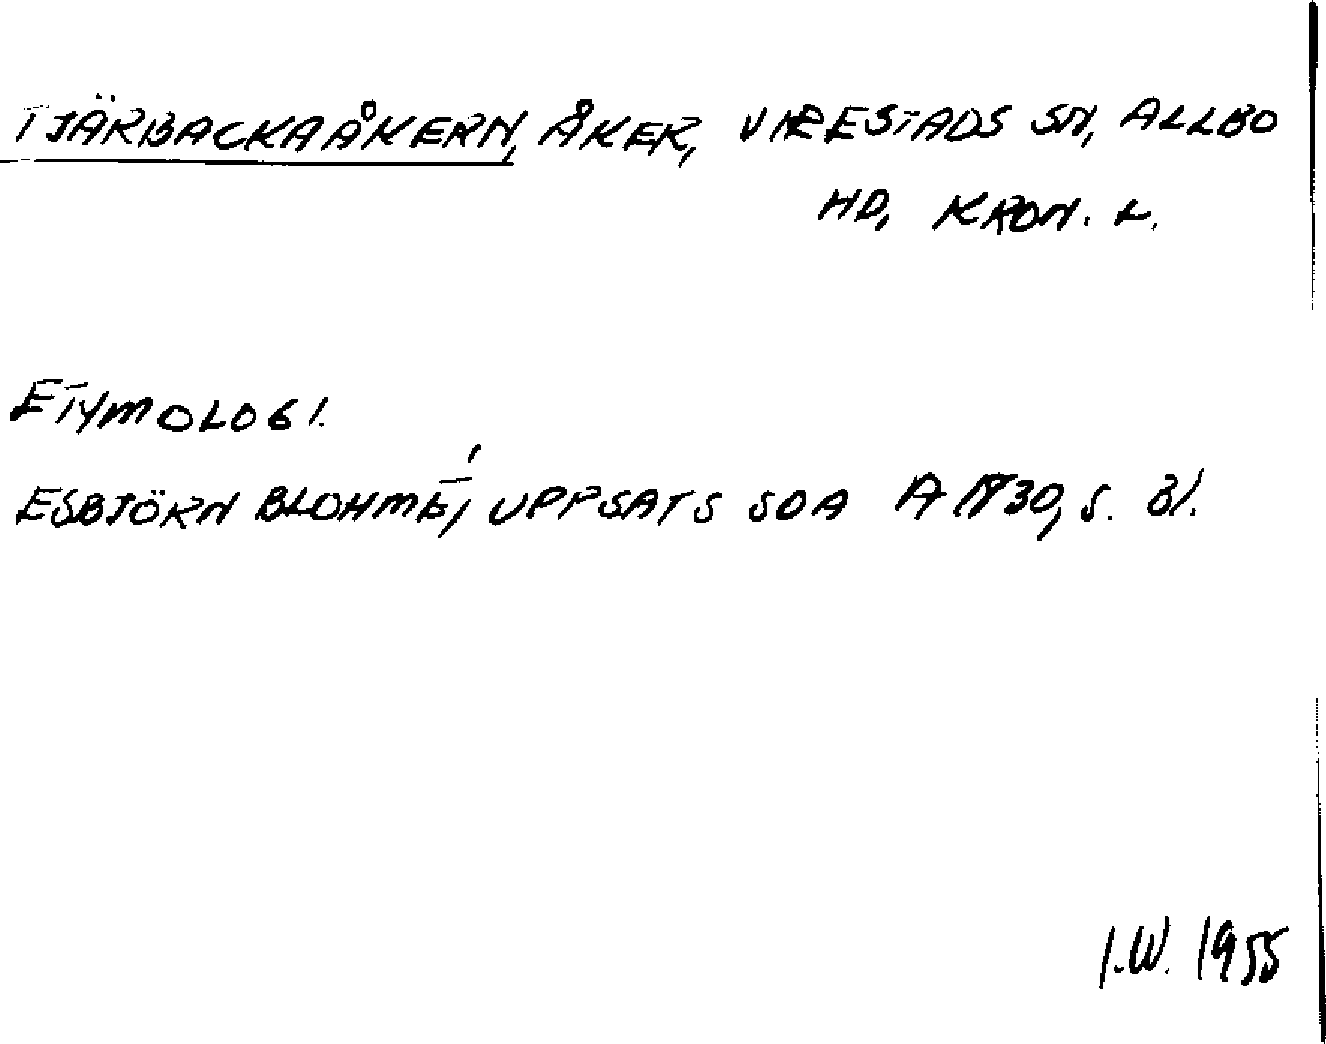 TJÄRBACKAÅKERN, ÅKER, VIRESTADS SN, ALLBO
HD, KRON. L.
ETYMOLOGI.
ESBJÖRN BLOHMÉ, UPPSATS SOA A 1930, S. 31.
I.W. 1955